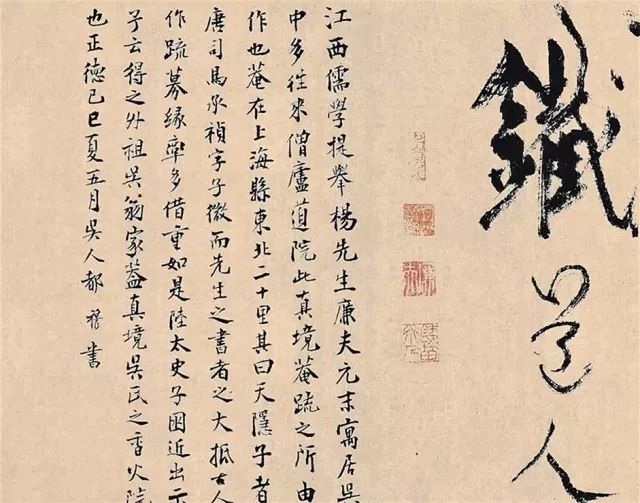 鐵道人
江西儒學提舉楊先生廉夫元末寓居吳
中多往來僧廬道院此真境菴疏之所由
作也菴在上海縣東北二十里其曰天隱子者
唐司馬承禎字子微而先生之書者之大抵古人
作疏募緣率多借重如是陸太史子困近出示
予云得之外祖吳翁家葢真境吳民之香火院
也正德己巳夏五月吳人都穆書